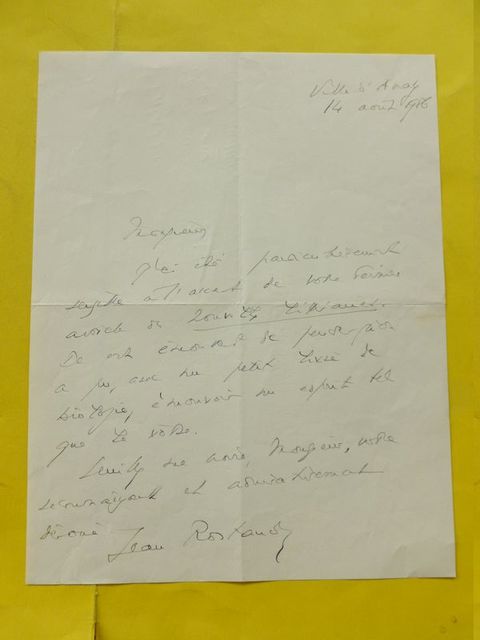 Ville d'Avray
14 août 19
Monsieur
J'ai été particulièrement
sensible à l'accent de votre
article des Nouvelles Littéraires.
Il est émouvant de penser qu'on
a pu, avec un petit livre de
biologie, émouvoir un esprit tel
que le vôtre.
Veuillez me croire, Monsieur, votre
reconnaissant et admirativement
dévoué
Jean Rostand